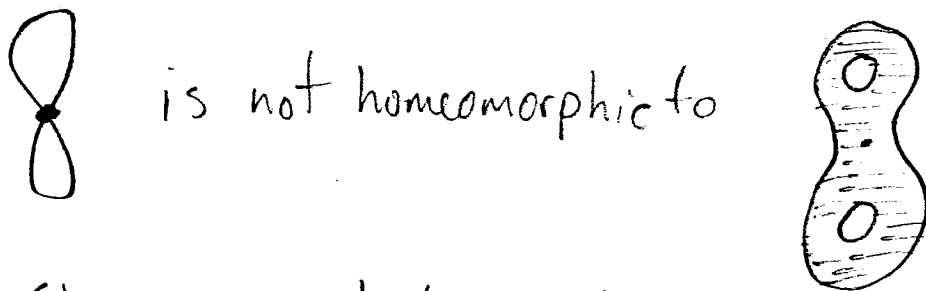 is not homeomorphic to